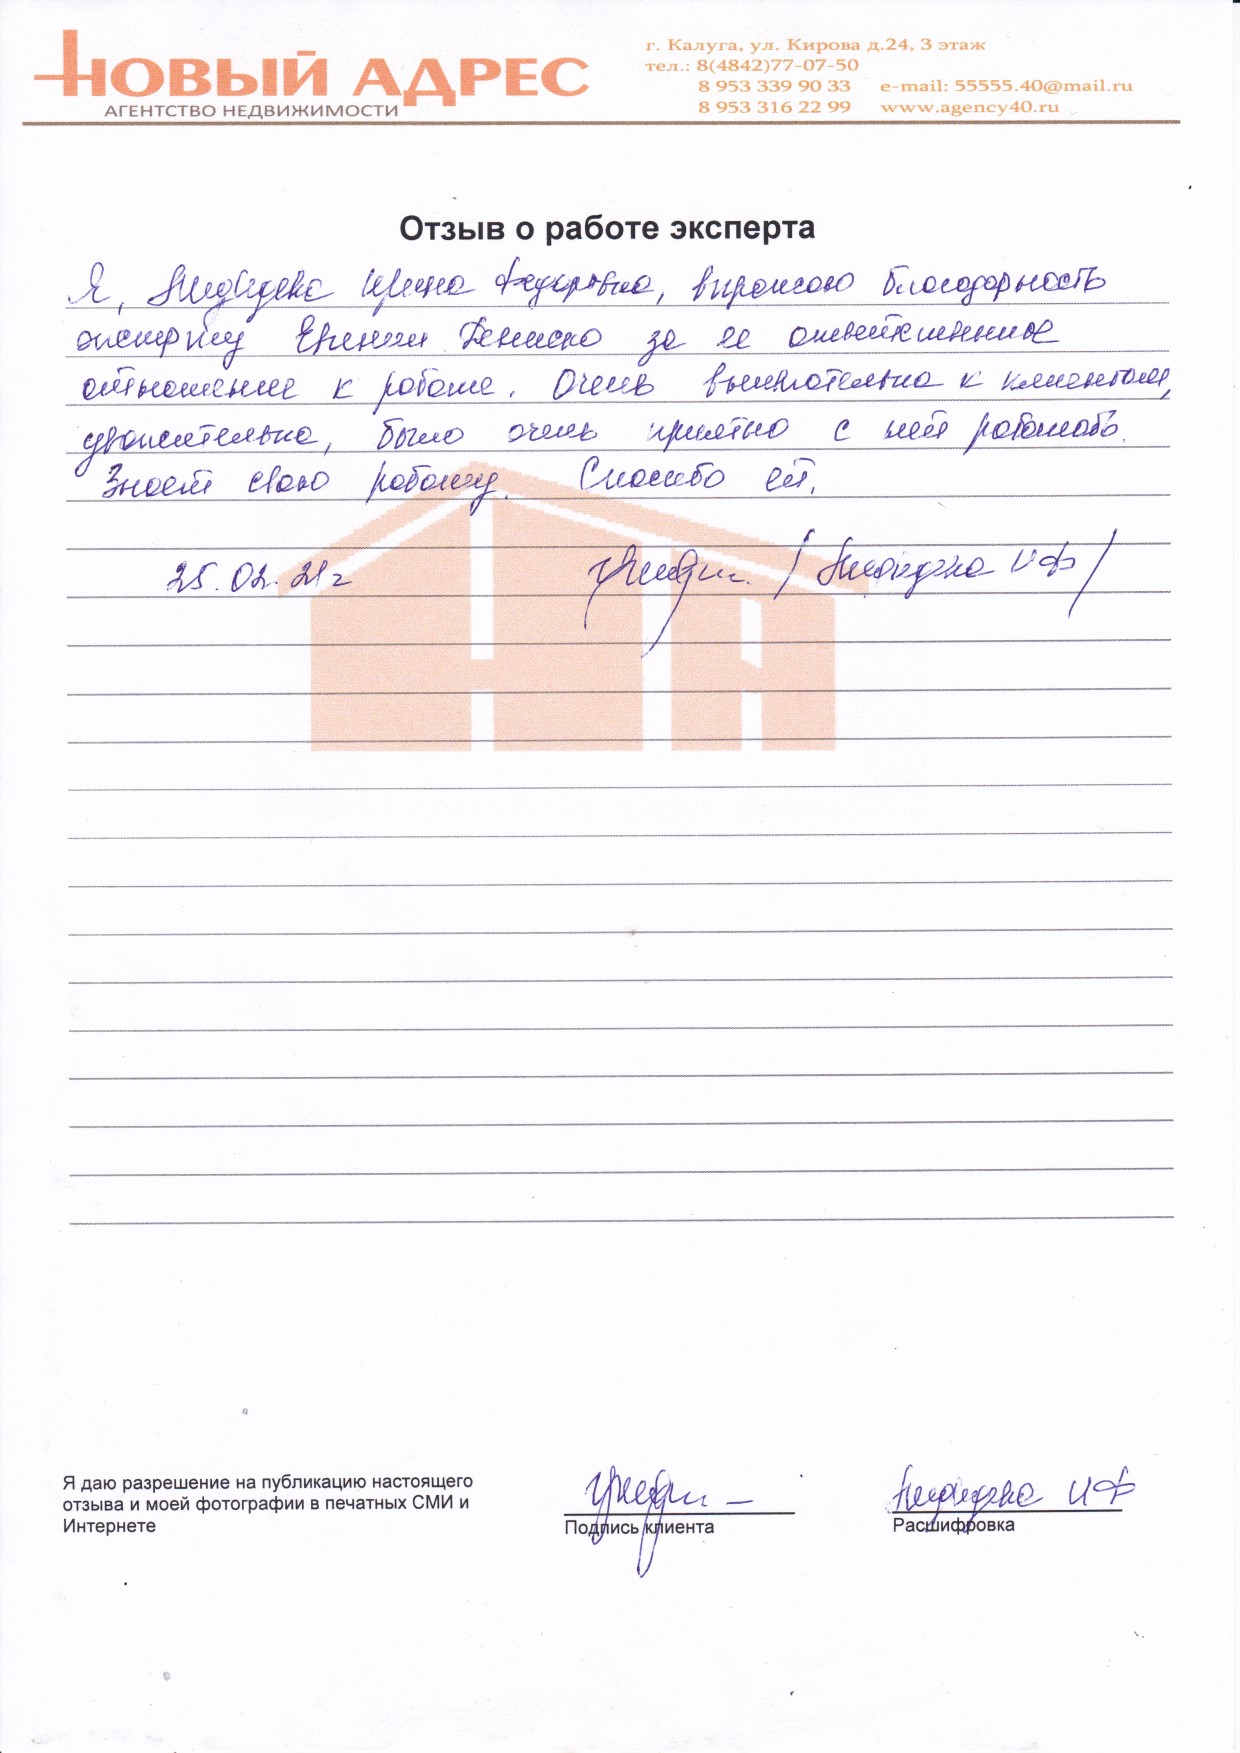 НОВЫЙ АДРЕС
АГЕНТСТВО НЕДВИЖИМОСТИ
г. Калуга, ул. Кирова д.24, 3 этаж
тел.: 8(4842)77-07-50
8 953 339 90 33 e-mail: 55555.40@mail.ru
8 953 316 22 99 www.agency40.ru
Отзыв о работе эксперта
Я, Ирина Федоровна, выражаю благодарность
эксперту Евгении Дениско за ее ответственное
отношение к работе. Очень внимательна к клиентам,
уважительна, было очень приятно с ней работать.
Знает свою работу. Спасибо ей.
25.02.21г / И Ф /
Я даю разрешение на публикацию настоящего
отзыва и моей фотографии в печатных СМИ и
Интернете
И Ф
Подпись клиента
Расшифровка